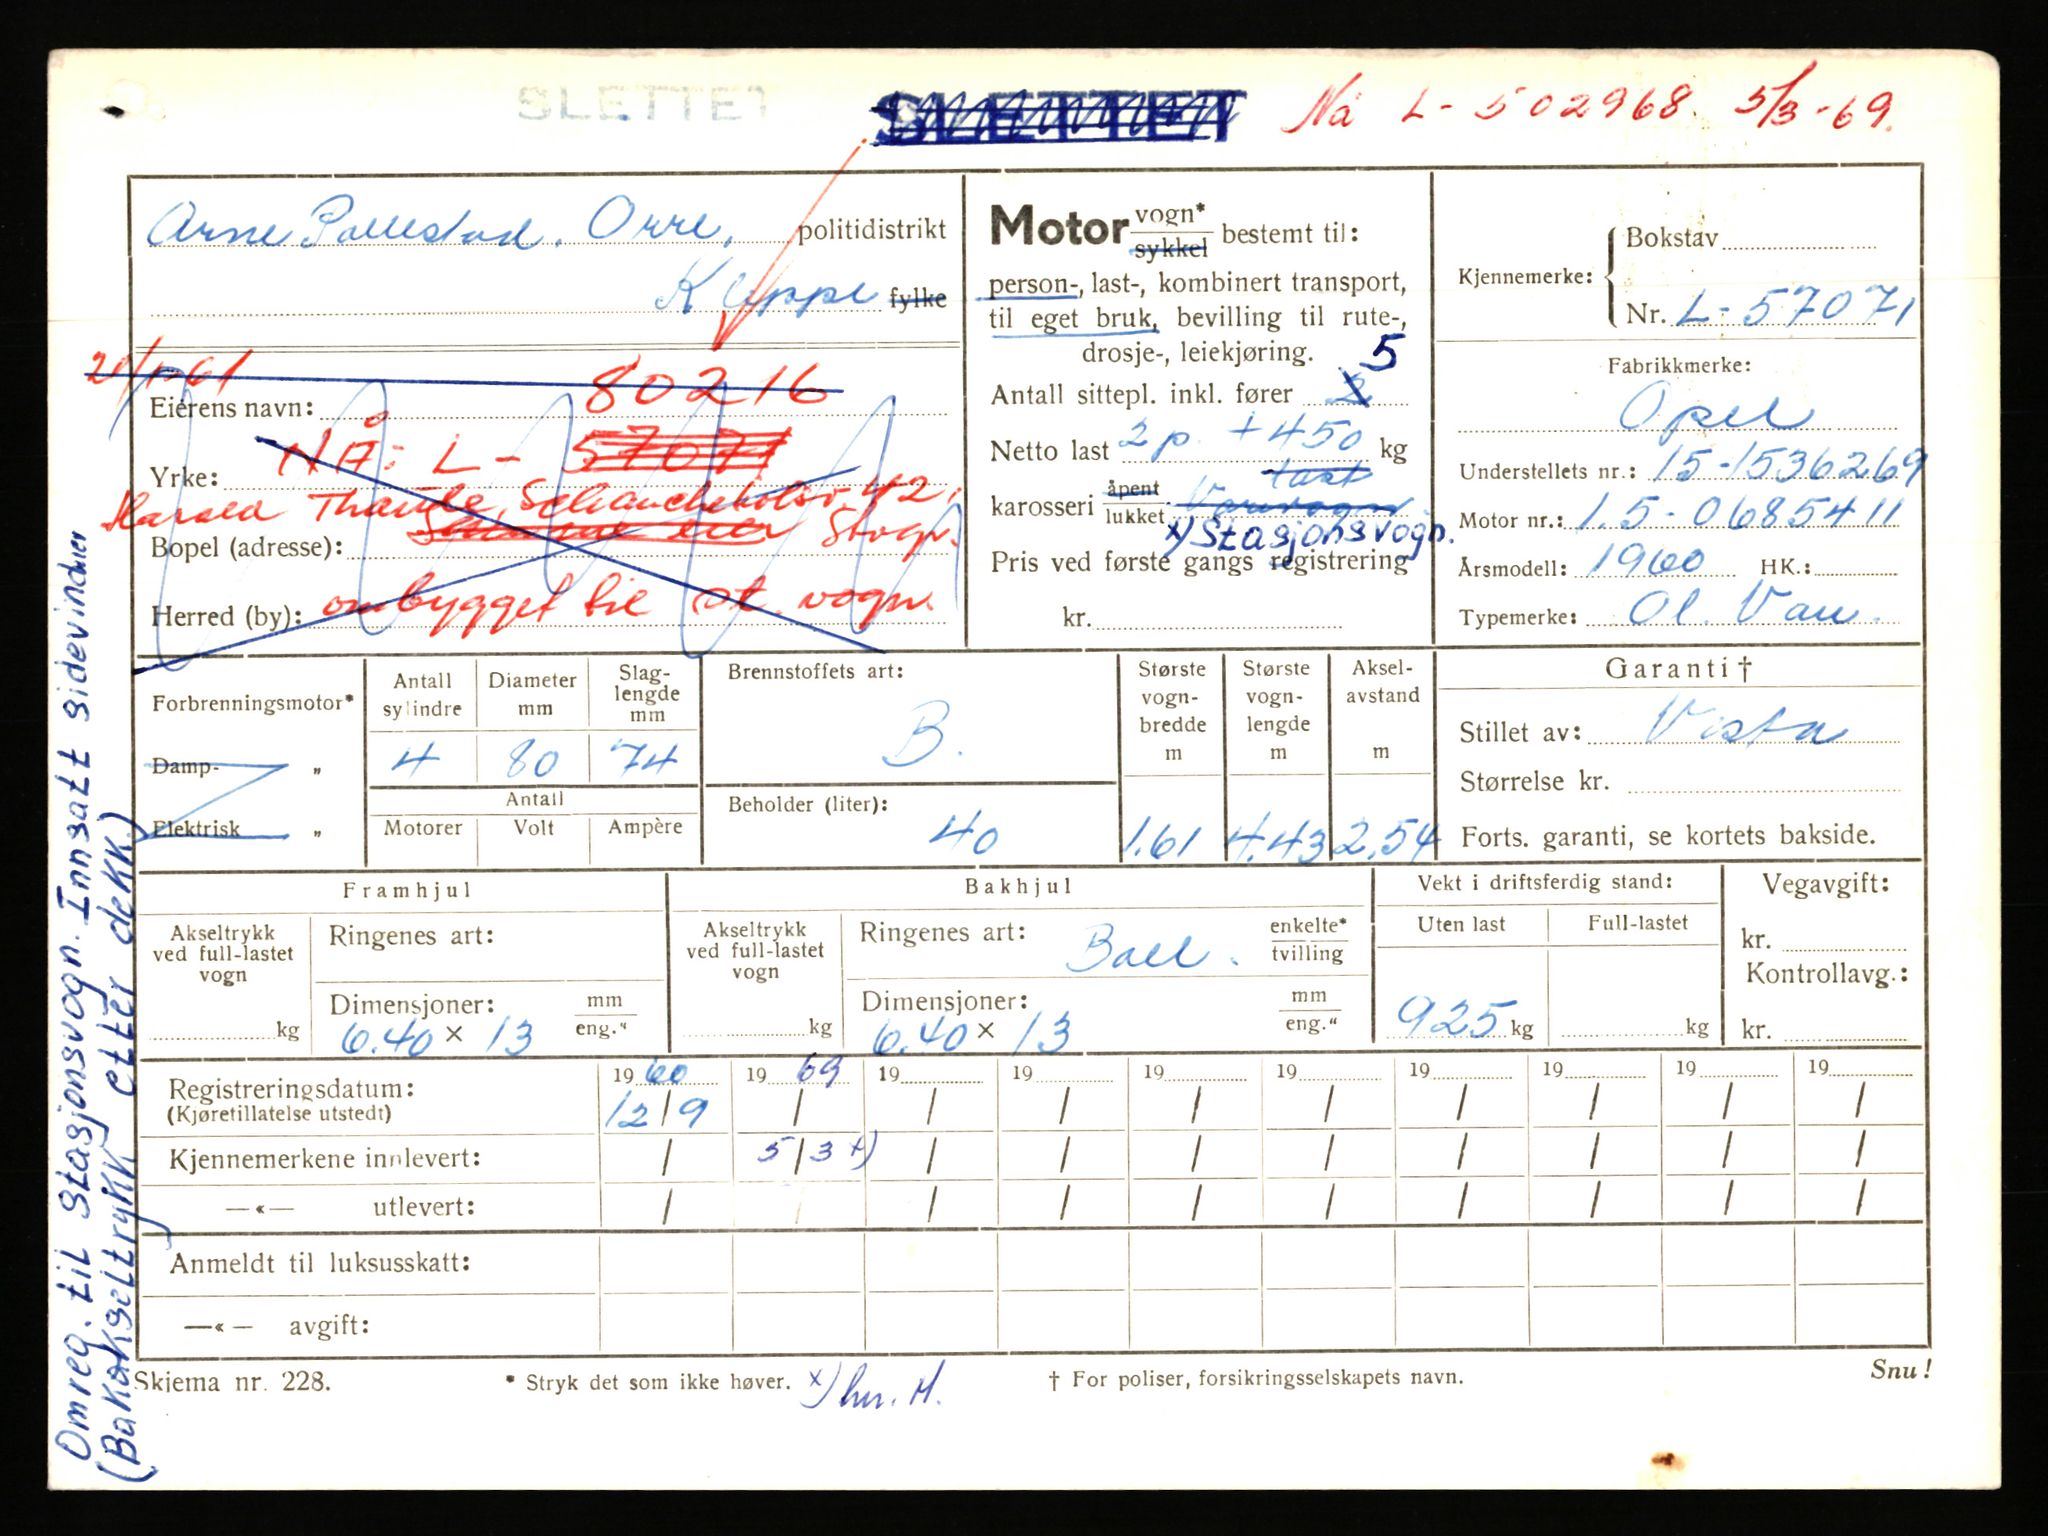 SLETTET SLETTET Nå L-502968. 5/3-69.
Arne Pollestad. Orre, politidistrikt
Kleppe fylke
80216
Eierens navn:
NÅ: L- 57071
Yrke:
Harald Thause, Schancheholen 42,
Bopel (adresse): Stvgr.
Herred (by): ombygget til st. vogn.
Motor vogn* sykkel bestemt til:
person-, last-, kombinert transport,
til eget bruk, bevilling til rute-,
drosje-, leiekjøring.
Antall sittepl. inkl. fører 2 5
Netto last 2 p. + 450 kg
last
karosseri åpent lukket Varevogn
x) Stasjonsvogn.
Pris ved første gangs registrering
kr.
Kjennemerke: Bokstav
Nr. L-57071
Fabrikkmerke:
Opel
Understellets nr.: 15-1536269
Motor nr.: 1.5-0685411
Årsmodell: 1960 HK.:
Typemerke: Ol. Van.
Forbrenningsmotor*
Damp- „
Elektrisk „
Antall sylindre Diameter mm Slaglengde mm
4 80 74
Antall
Motorer Volt Ampère
Brennstoffets art:
B.
Beholder (liter):
40
Største vognbredde m Største vognlengde m Akselavstand m
1.61 4.43 2.54
Garanti †
Stillet av: Vesta
Størrelse kr.
Forts. garanti, se kortets bakside.
Framhjul
Akseltrykk ved full-lastet vogn
kg
Ringenes art:
Dimensjoner: mm eng."
6.40 × 13
Bakhjul
Akseltrykk ved full-lastet vogn
kg
Ringenes art: Ball. enkelte* tvilling
Dimensjoner: mm eng."
6.40 × 13
Vekt i driftsferdig stand:
Uten last Full-lastet
925 kg kg
Vegavgift:
kr.
Kontrollavg.:
kr.
Registreringsdatum: 19 60 19 69 19 19 19 19 19 19 19 19
(Kjøretillatelse utstedt) 12/9 / / / / / / / / /
Kjennemerkene innlevert: / 5/3 x) / / / / / / / /
—«— utlevert: / / / / / / / / / /
Anmeldt til luksusskatt:
—«— avgift:
Skjema nr. 228. * Stryk det som ikke høver. x) † For poliser, forsikringsselskapets navn. Snu!
Omreg. til stasjonsvogn. Innsatt sidevinduer
(Bakakseltrykk etter dekk.)